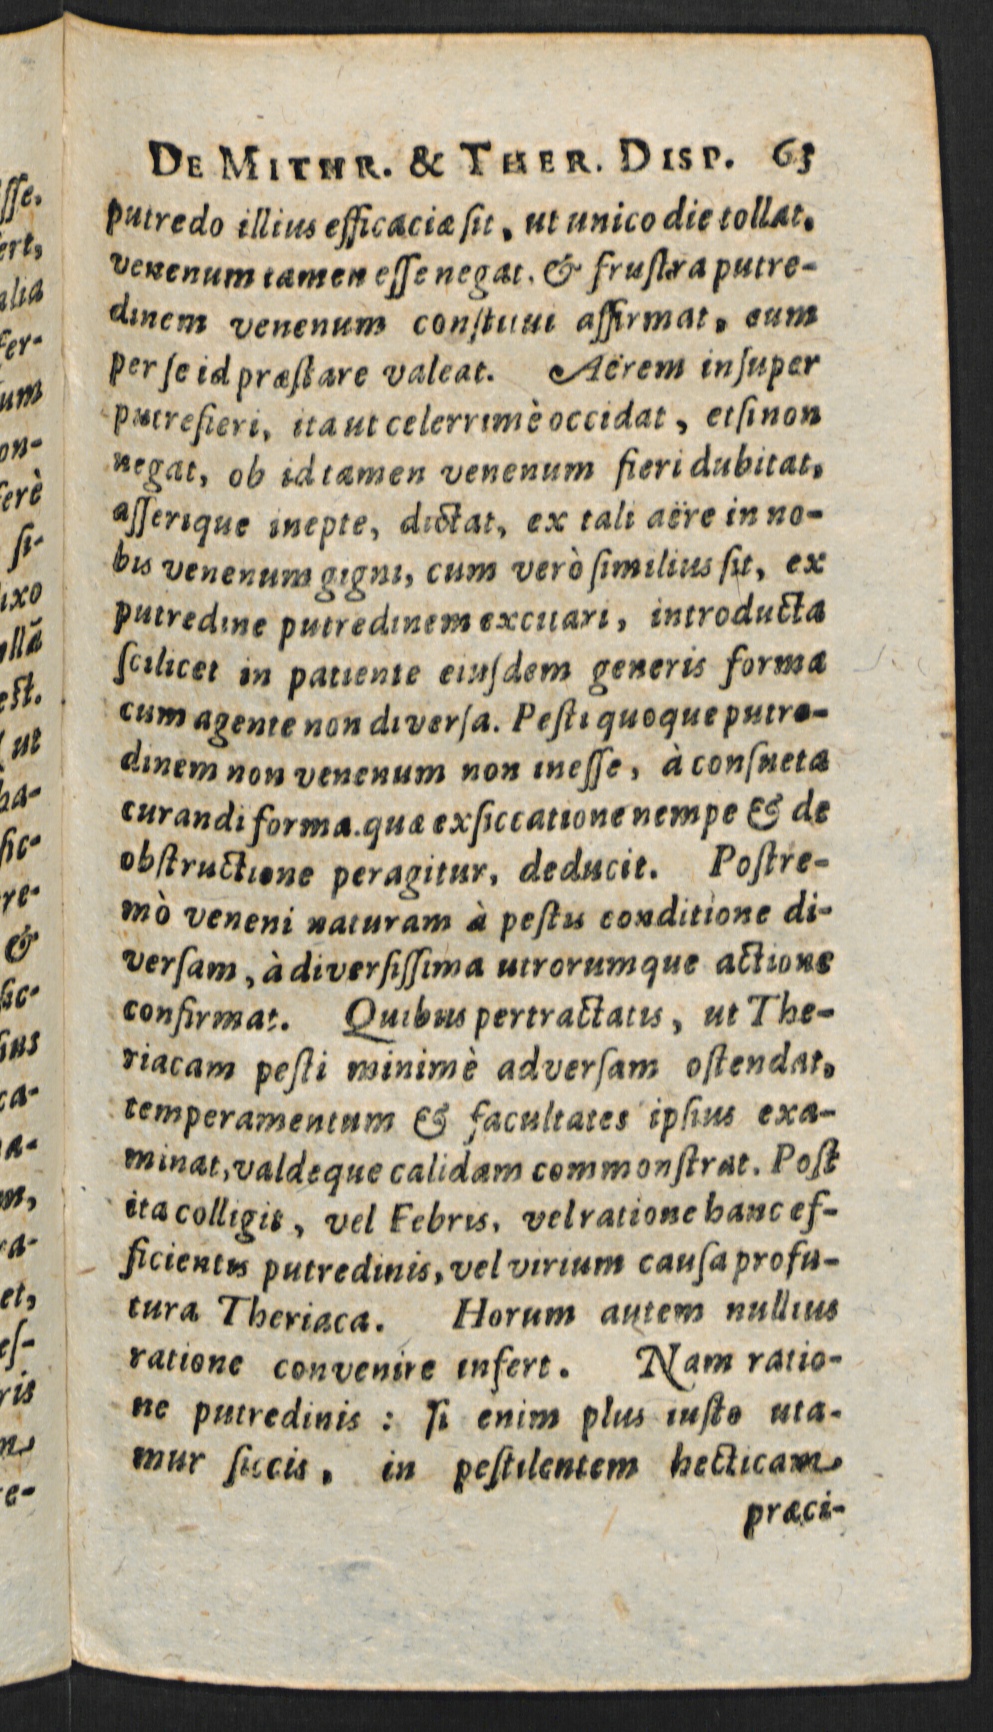 DE MITHR. & THER. DISP. 65
putredo illius efficaciæ ſit, ut unico die tollat,
venenum tamen eſſe negat. & fruſtra putre-
dinem venenum conſtitui affirmat, cum
per ſe id præſtare valeat. Aërem inſuper
putrefieri, ita ut celerrimè occidat, etſi non
negat, ob id tamen venenum fieri dubitat,
aſſerique inepte, dictat, ex tali aëre in no-
bis venenum gigni, cum verò ſimilius ſit, ex
putredine putredinem excitari, introducta
ſcilicet in patiente eiuſdem generis forma
cum agente non diverſa. Peſti quoque putre-
dinem non venenum non ineſſe, à conſueta
curandi forma. quæ exſiccatione nempe & de
obſtructione peragitur, deducit. Poſtre-
mò veneni naturam à peſtis conditione di-
verſam, à diverſiſſima utrorumque actione
confirmat. Quibus pertractatis, ut The-
riacam peſti minimè adverſam oſtendat,
temperamentum & facultates ipſius exa-
minat, valdeque calidam commonſtrat. Poſt
ita colligit, vel Febris, vel ratione hanc ef-
ficientis putredinis, vel virium cauſa profu-
tura Theriaca. Horum autem nullius
ratione convenire infert. Nam ratio-
ne putredinis : ſi enim plus iuſto uta-
mur ſiccis, in peſtilentem hecticam
præci-
ſſe,
ert,
alia
fer-
um
on-
ferè
ſi-
ixo
ullâ
eſt.
(ut
ha-
ſic-
re-
&
ſic-
ſius
ca-
a-
m,
ra-
et,
eſ-
ris
m
re-